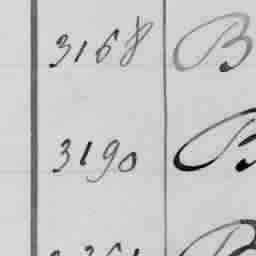 3168 B
3190 B